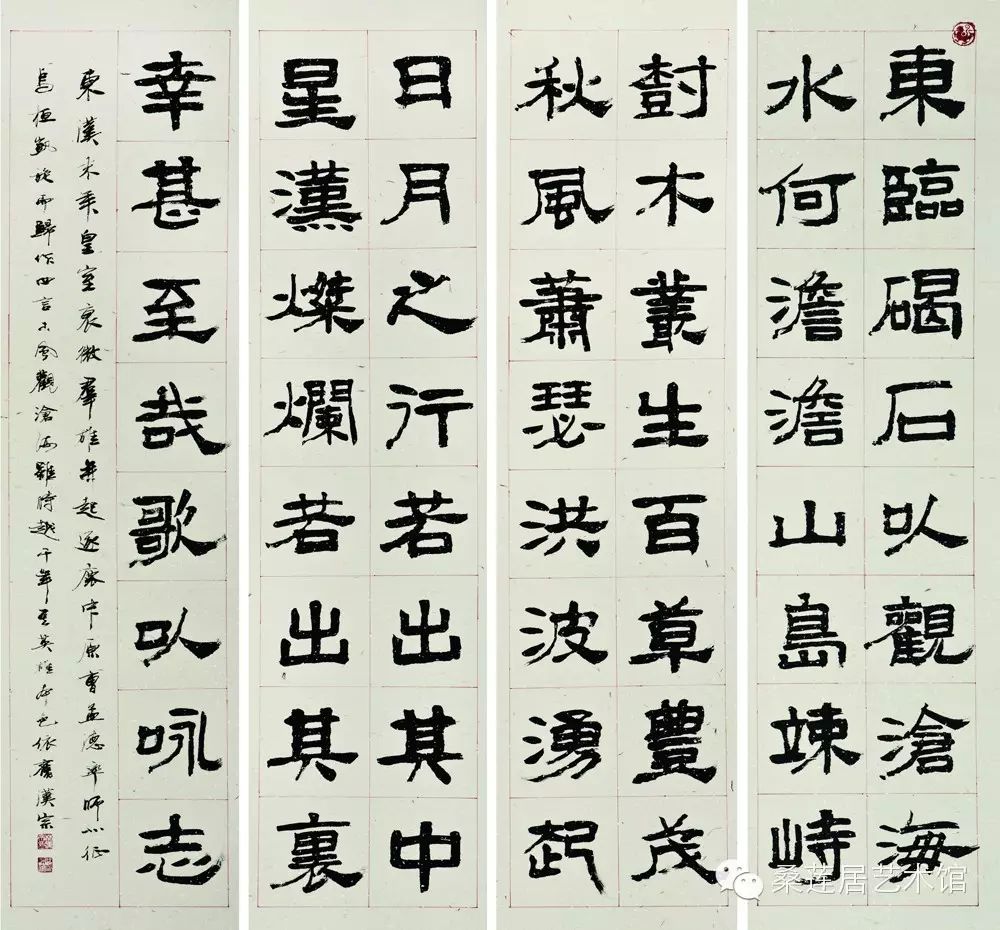 東臨碣石以觀滄海
水何澹澹山島竦峙
樹木叢生百草豐茂
秋風蕭瑟洪波湧起
日月之行若出其中
星漢燦爛若出其裏
幸甚至哉歌以咏志
東漢末年皇室衰微群雄並起逐鹿中原曹孟德率師北征
烏桓凱旋而歸作四言古風觀滄海雖時越千年其英雄本色依舊漢宗
桑莲居艺术馆